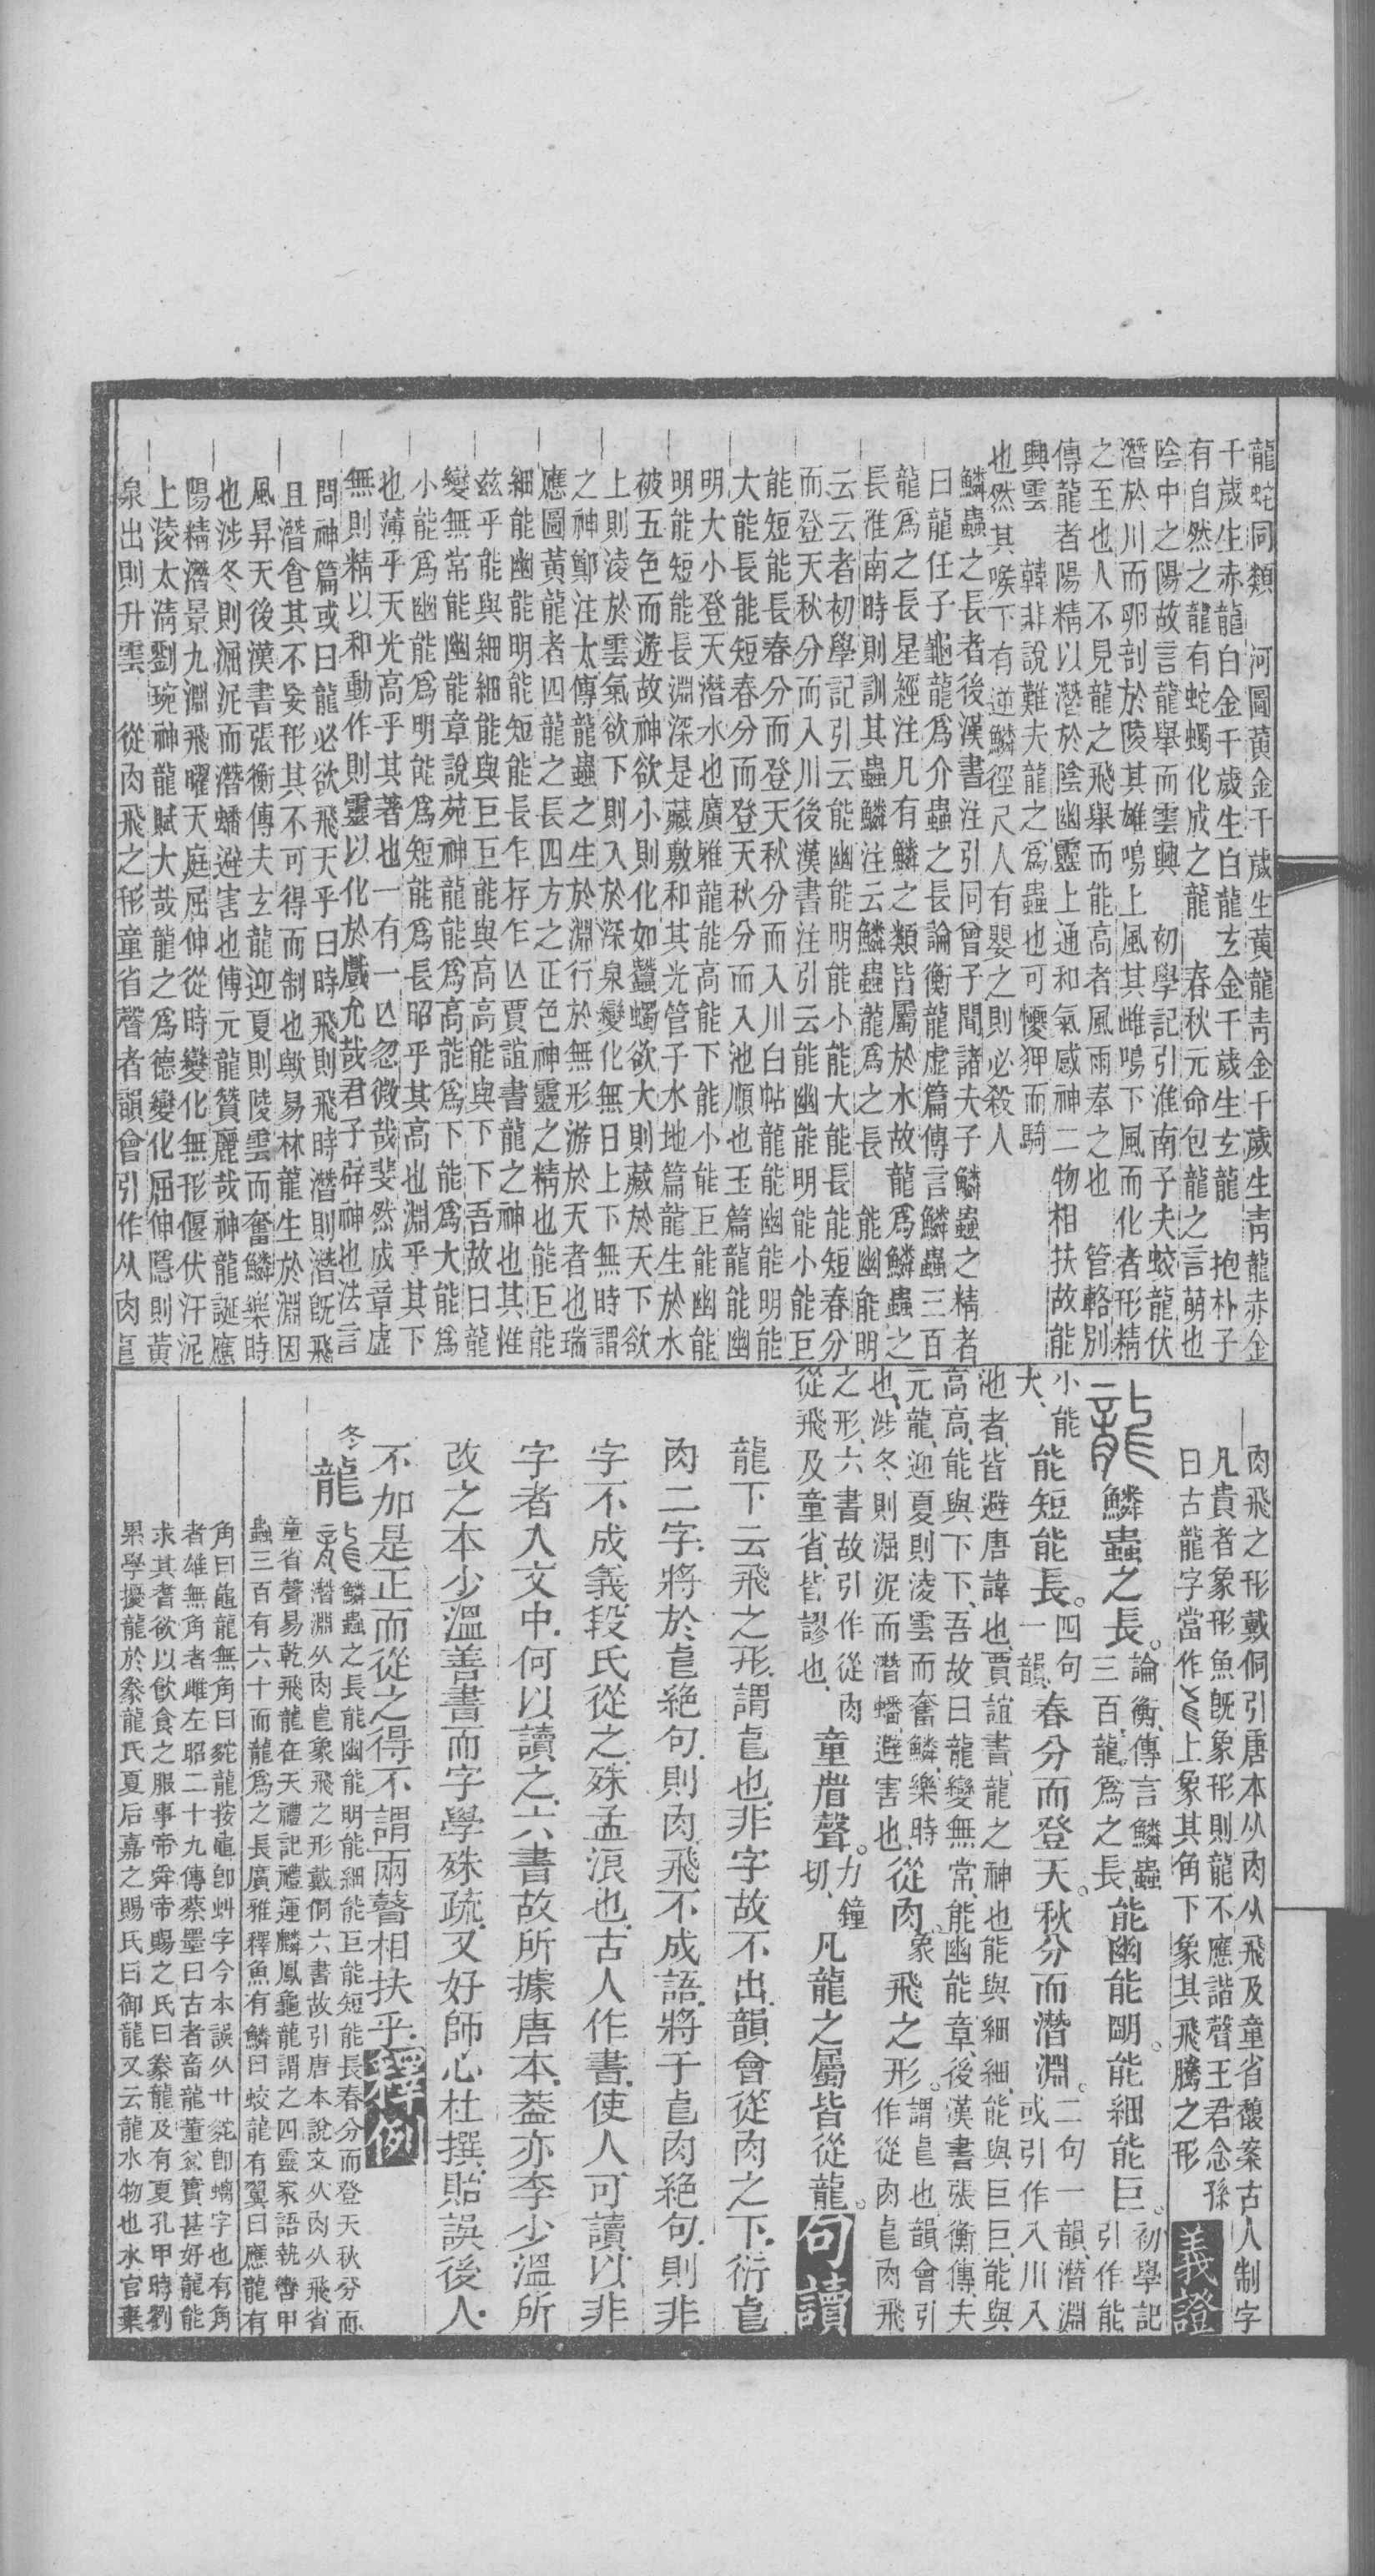 龍蛇同類　河圖黃金千歲生黃龍靑金千歲生靑龍赤金
千歲生赤龍白金千歲生白龍玄金千歲生玄龍　抱朴子
有自然之龍有蛇蠋化成之龍　春秋元命包龍之言萌也
陰中之陽故言龍舉而雲興　初學記引淮南子夫蛟龍伏
潛於川而卵剖於陵其雄鳴上風其雌鳴下風而化者形精
之至也人不見龍之飛舉而能高者風雨奉之也　管輅別
傳龍者陽精以潛於陰幽靈上通和氣感神二物相扶故能
興雲　韓非說難夫龍之爲蟲也可懮狎而騎
也然其喉下有逆鱗徑尺人有嬰之則必殺人
鱗蟲之長者後漢書注引同曾子問諸夫子鱗蟲之精者
曰龍任子龜龍爲介蟲之長論衡龍虛篇傳言鱗蟲三百
龍爲之長星經注凡有鱗之類皆屬於水故龍爲鱗蟲之
長淮南時則訓其蟲鱗注云鱗蟲龍爲之長　能幽能明
云云者初學記引云能幽能明能小能大能長能短春分
而登天秋分而入川後漢書注引云能幽能明能小能巨
能短能長春分而登天秋分而入川白帖龍能幽能明能
大能長能短春分而登天秋分而入池順也玉篇龍能幽
明大小登天潛水也廣雅龍能高能下能小能巨能幽能
明能短能長淵深是藏敷和其光管子水地篇龍生於水
被五色而遊故神欲小則化如蠶蠋欲大則藏於天下欲
上則淩於雲氣欲下則入於深泉變化無日上下無時謂
之神鄭注太傳龍蟲之生於淵行於無形游於天者也瑞
應圖黃龍者四龍之長四方之正色神靈之精也能巨能
細能幽能明能短能長乍存乍亡賈誼書龍之神也其惟
兹乎能與細細能與巨巨能與高高能與下下吾故曰龍
變無常能幽能章說苑神龍能爲高能爲下能爲大能爲
小能爲幽能爲明能爲短能爲長昭乎其高也淵乎其下
也薄乎天光高乎其著也一有一亡忽微哉斐然成章虛
無則精以和動作則靈以化於戲允哉君子辟神也法言
問神篇或曰龍必欲飛天乎曰時飛則飛時潛則潛旣飛
且潛食其不妄形其不可得而制也歟易林龍生於淵因
風昇天後漢書張衡傳夫玄龍迎夏則陵雲而奮鱗樂時
也涉冬則淈泥而潛蟠避害也傅元龍贊麗哉神龍誕應
陽精潛景九淵飛曜天庭屈伸從時變化無形偃伏汙泥
上淩太淸劉琬神龍賦大哉龍之爲德變化屈伸隱則黃
泉出則升雲　從肉飛之形童省聲者韻會引作从肉㐆
肉飛之形戴侗引唐本从肉从飛及童省馥案古人制字
凡貴者象形魚旣象形則龍不應諧聲王君念孫
曰古龍字當作上象其角下象其飛騰之形　義證
龍鱗蟲之長。論衡傳言鱗蟲三百龍爲之長能幽能朙。能細能巨。初學記引作能
小能大、能短能長。四句一韻春分而登天。秋分而潛淵。二句一韻潛淵或引作入川入
池者、皆避唐諱也、賈誼書、龍之神也能與細細、能與巨巨、能與
高高、能與下下、吾故曰龍變無常、能幽能章、後漢書張衡傳、夫
元龍、迎夏則淩雲而奮鱗、樂時也、涉冬、則淈泥而潛蟠、避害也、從肉、象飛之形。謂㐆也、韻會引作從肉㐆肉飛
之形、六書故、引作從肉從飛及童省、皆謬也、童省聲。力鐘切、凡龍之屬皆從龍。句讀
龍下云飛之形、謂㐆也、非字故不出、韻會從肉之下、衍㐆
肉二字、將於㐆絕句、則肉飛不成語、將于㐆肉絕句、則非
字不成義段氏從之、殊孟浪也、古人作書、使人可讀、以非
字者入文中、何以讀之、六書故所據唐本、葢亦李少溫所
改之本少溫善書而字學殊疏、又好師心杜撰、貽誤後人、
不加是正而從之得不謂兩瞽相扶乎、釋例
冬龍　鱗蟲之長能幽能明能細能巨能短能長春分而登天秋分而
潛淵从肉㐆象飛之形戴侗六書故引唐本說文从肉从飛省
童省聲易乾飛龍在天禮記禮運麟鳳龜龍謂之四靈家語執轡甲
蟲三百有六十而龍爲之長廣雅釋魚有鱗曰蛟龍有翼曰應龍有
角曰龍無角曰龍按卽虯字今本誤从廿卽螭字也有角
者雄無角者雌左昭二十九傳蔡墨曰古者畜龍董父實甚好龍能
求其耆欲以飮食之服事帝舜帝賜之氏曰豢龍及有夏孔甲時劉
累學擾龍於豢龍氏夏后嘉之賜氏曰御龍又云龍水物也水官棄